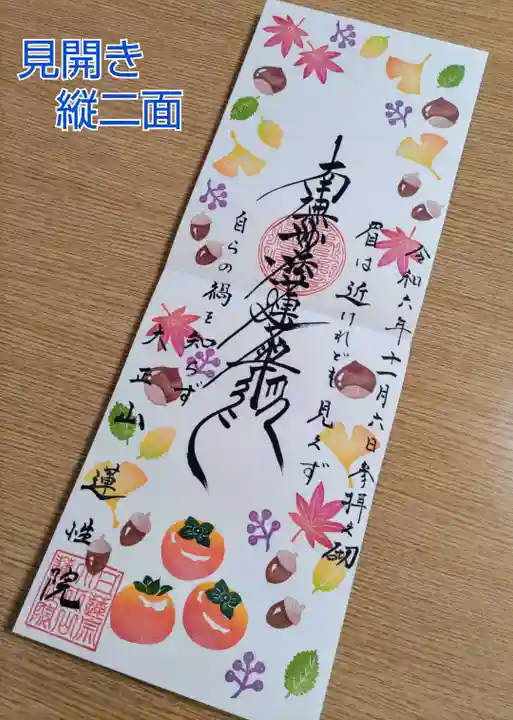 見開き
縦二面
令和六年十一月六日参拝之砌
眉は近けれども見へず
南無妙法蓮華経
自らの禍を知らず
大正山蓮性院